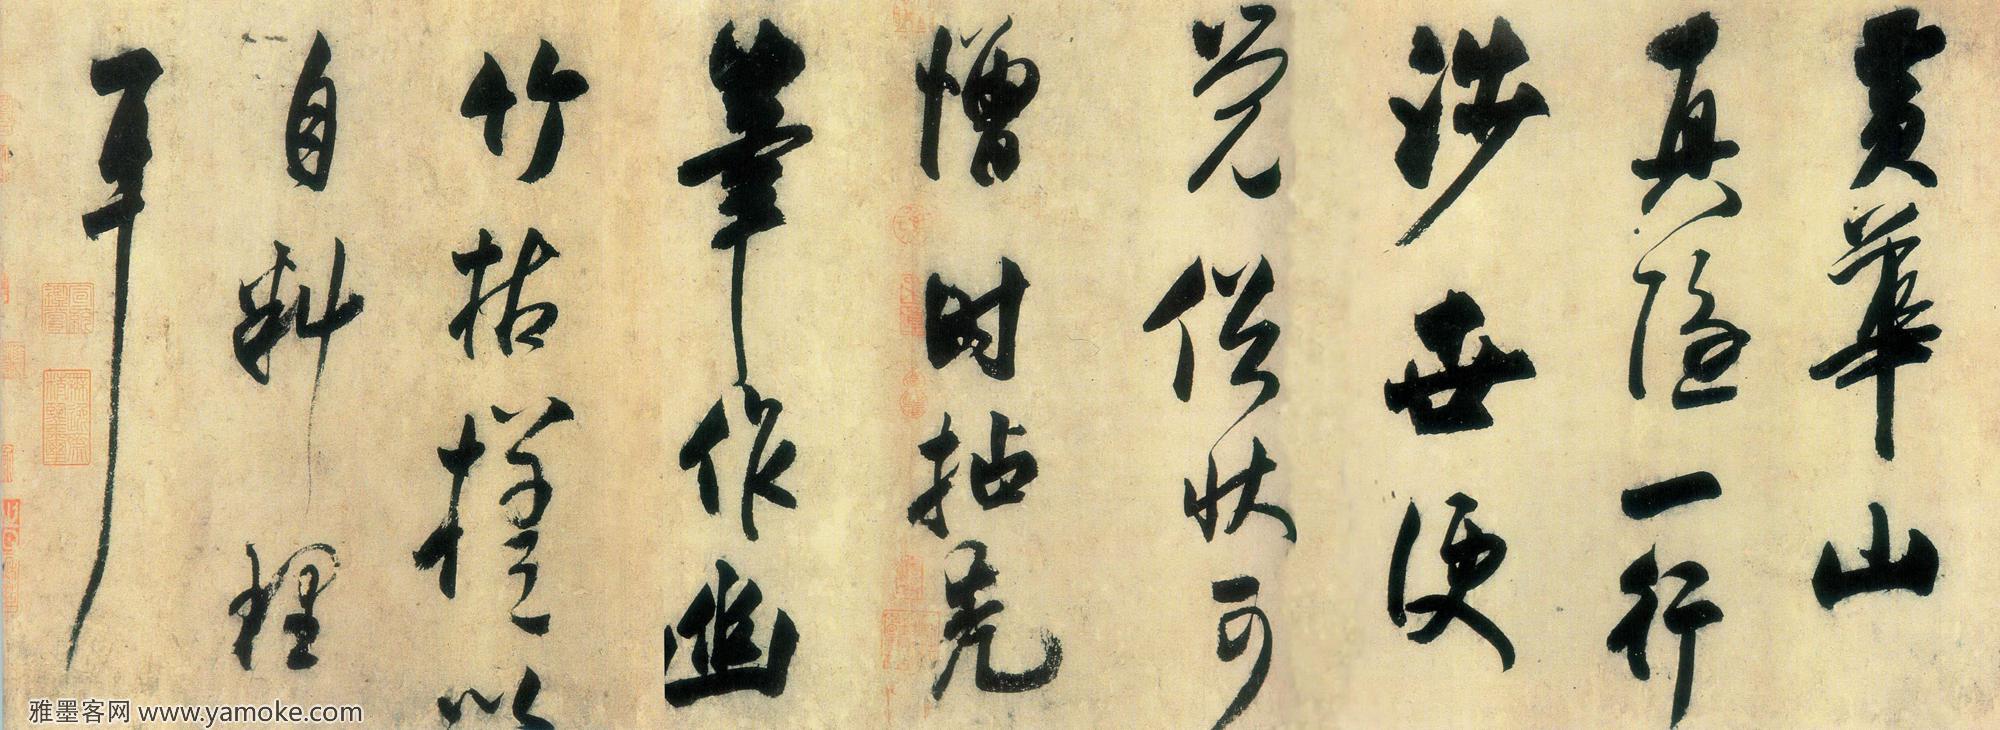 黃華山
真隱一行
涉世便
覺俗狀可
憎時拈禿
筆作幽
竹枯槎以
自料理
耳
雅墨客网 www.yamoke.com